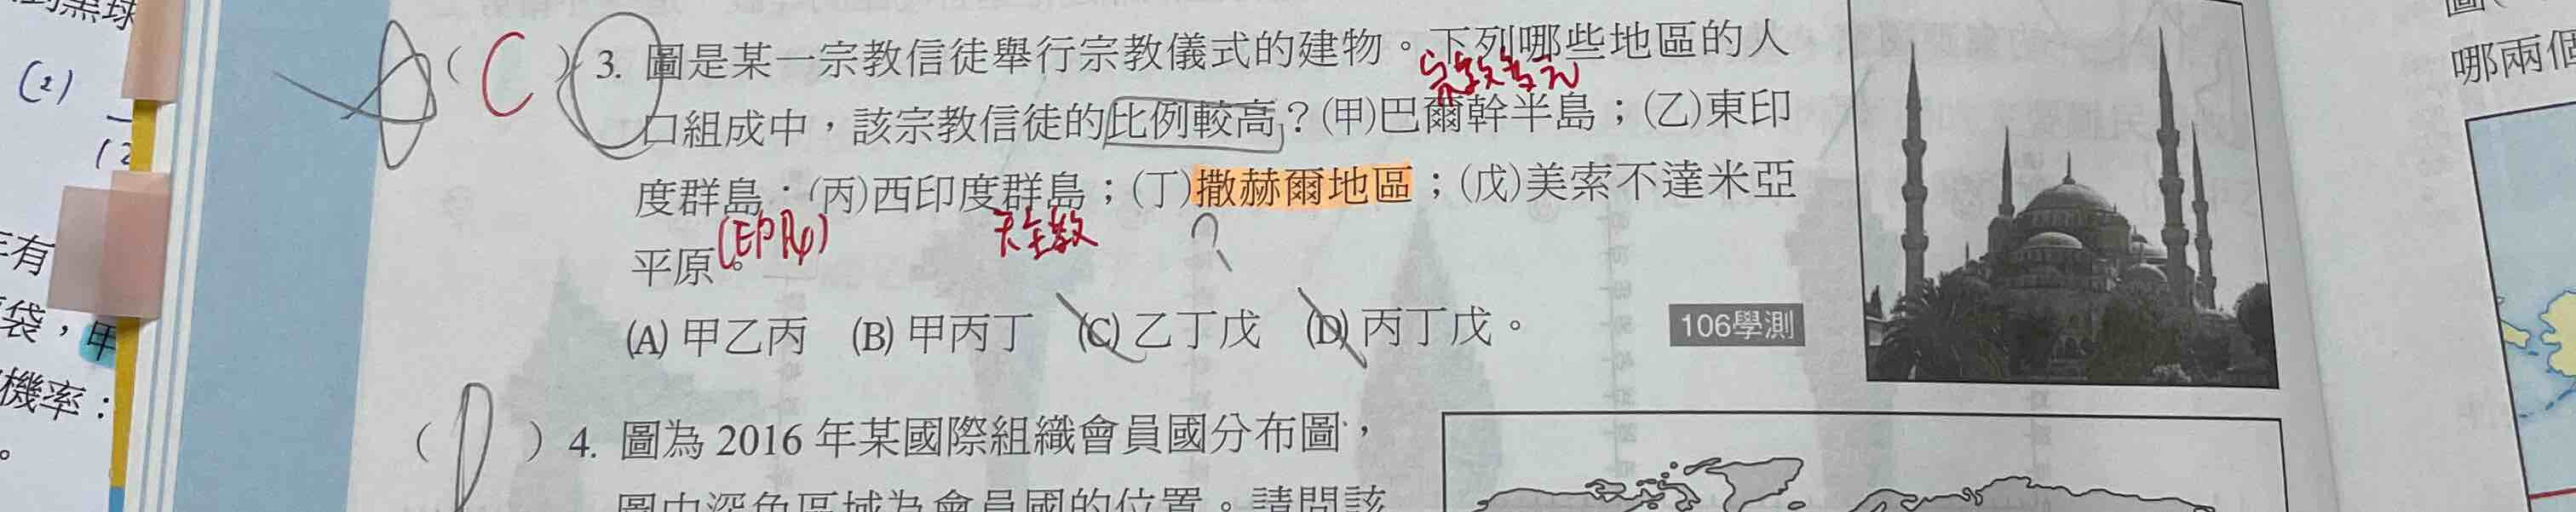 (2)
12
( C ) 3. 圖是某一宗教信徒舉行宗教儀式的建物。下列哪些地區的人
宗教多元
口組成中，該宗教信徒的比例較高？(甲)巴爾幹半島；(乙)東印
度群島；(丙)西印度群島；(丁)撒赫爾地區；(戊)美索不達米亞
(印尼)
天主教
?
平原。
(A) 甲乙丙 (B) 甲丙丁 (C) 乙丁戊 (D) 丙丁戊。
106學測
( ) 4. 圖為 2016 年某國際組織會員國分布圖，
圖中深色區域為會員國的位置。請問該
有
袋，甲
機率：
。
哪兩個